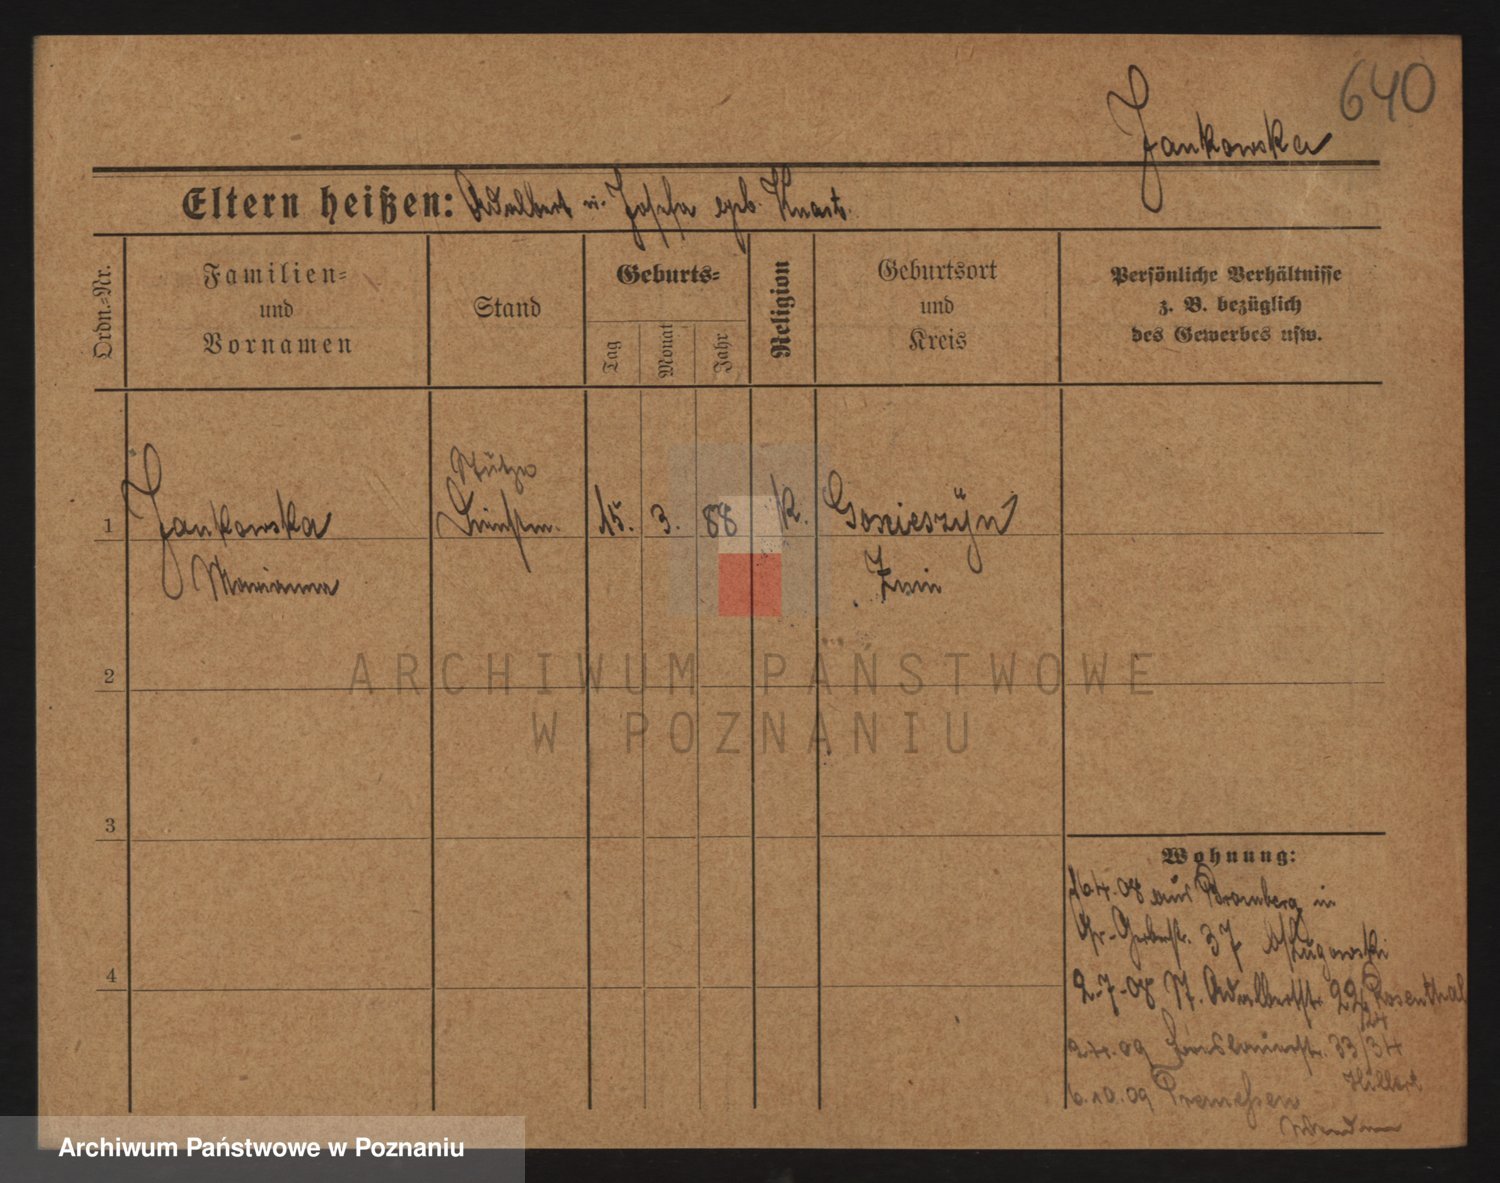 640
Jankowska
Eltern heißen: Adalbert u. Josefa geb. Knast.
Ordn.-Nr.
Familien-
und
Vornamen
Stand
Geburts-
Tag
Monat
Jahr
Religion
Geburtsort
und
Kreis
Persönliche Verhältnisse
z. B. bezüglich
des Gewerbes usw.
Stütze
1 Jankowska 15. 3. 88 K. Goszieszyn
Marianna Znin
2
ARCHIWUM PAŃSTWOWE
W POZNANIU
3
Wohnung:
16.4.08 aus Bromberg in
Gr. Gerberstr. 37
4
2.7.08 St. Adalbertstr. 22 Rosenthal
2.4.09 33/34
6.10.09 Tremessen
Archiwum Państwowe w Poznaniu